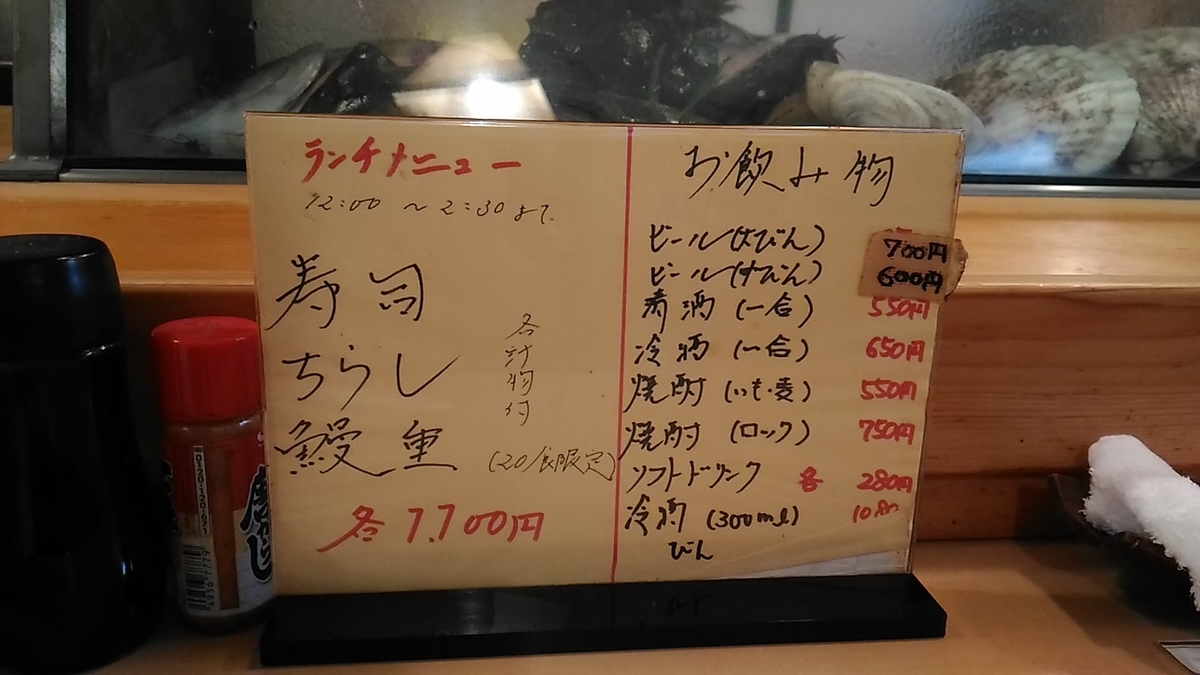 ランチメニュー
12:00 ～ 2:30まで
寿司
ちらし
鰻重
(20食限定)
各汁物付
各 1,700円
お飲み物
ビール(大びん) 700円
ビール(中びん) 600円
清酒 (一合) 550円
冷酒 (一合) 650円
焼酎 (いも・麦) 550円
焼酎 (ロック) 750円
ソフトドリンク 各 280円
冷酒 (300ml)
びん
0120-120-671